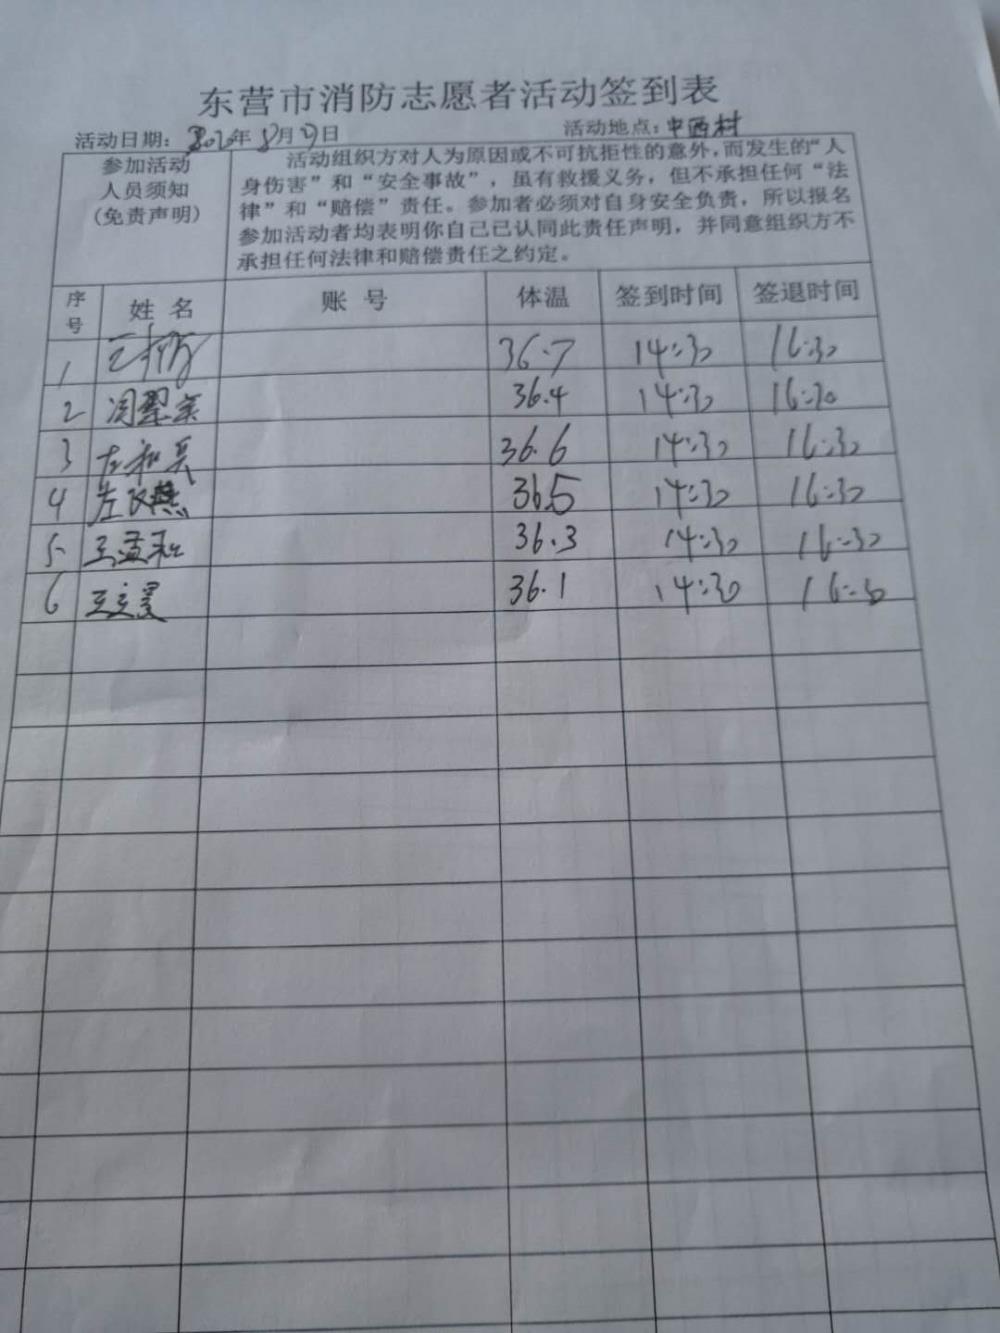 东营市消防志愿者活动签到表
活动日期：2020年8月9日 活动地点：中西村
参加活动
人员须知
(免责声明)
活动组织方对人为原因或不可抗拒性的意外,而发生的“人
身伤害”和“安全事故”，虽有救援义务，但不承担任何“法
律”和“赔偿”责任。参加者必须对自身安全负责，所以报名
参加活动者均表明你自己已认同此责任声明，并同意组织方不
承担任何法律和赔偿责任之约定。
序号 姓名 账号 体温 签到时间 签退时间
1 36.7 14:30 16:30
2 36.4 14:30 16:30
3 36.6 14:30 16:30
4 36.5 14:30 16:30
5 王孟和 36.3 14:30 16:30
6 36.1 14:30 16:30